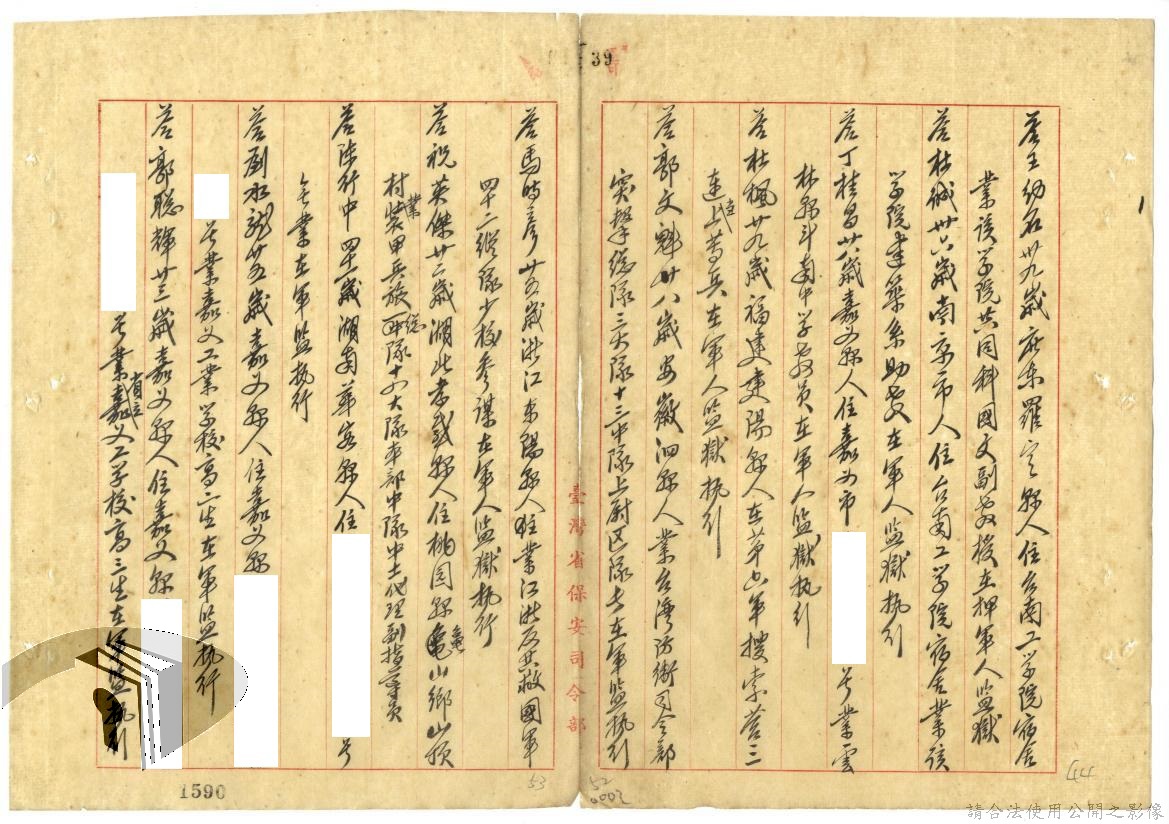 39
1
答王幼石卅九歲廣東羅定縣人住台南工學院宿舍
業該學院共同科國文副教授在押軍人監獄
答杜俶卅六歲南京市人住台南工學院宿舍業該
學院建築系助教在軍人監獄執行
答丁桂昌廿八歲嘉義縣人住嘉義市 号業雲
林縣斗南中學教員在軍人監獄執行
答杜楓廿九歲福建建陽縣人在第六軍搜索营三
連上等兵在軍人監獄執行
答郭文魁廿八歲安徽泗縣人業台湾防衛司令部
突擊總隊三大隊十三中隊上尉区隊長在軍監執行
臺灣省保安司令部
答馬時彥廿五歲浙江東陽縣人業江浙反共救國軍
四十二縱隊少校參謀在軍人監獄執行
答祝英傑廿二歲湖北孝感縣人住桃园縣龜山鄉山頂
村業裝甲兵旅總隊十六大隊本部中隊中士代理副指導員
答陳行中四十一歲湖南華容縣人住 号
無業在軍監執行
答劉水龍廿五歲嘉义縣人住嘉义縣
号業嘉义工業學校高二生在軍監執行
答郭聰輝廿三歲嘉义縣人住嘉义縣
号業嘉义工學校高三生在軍監執行
1590
53
52
0002
44
請合法使用公開之影像